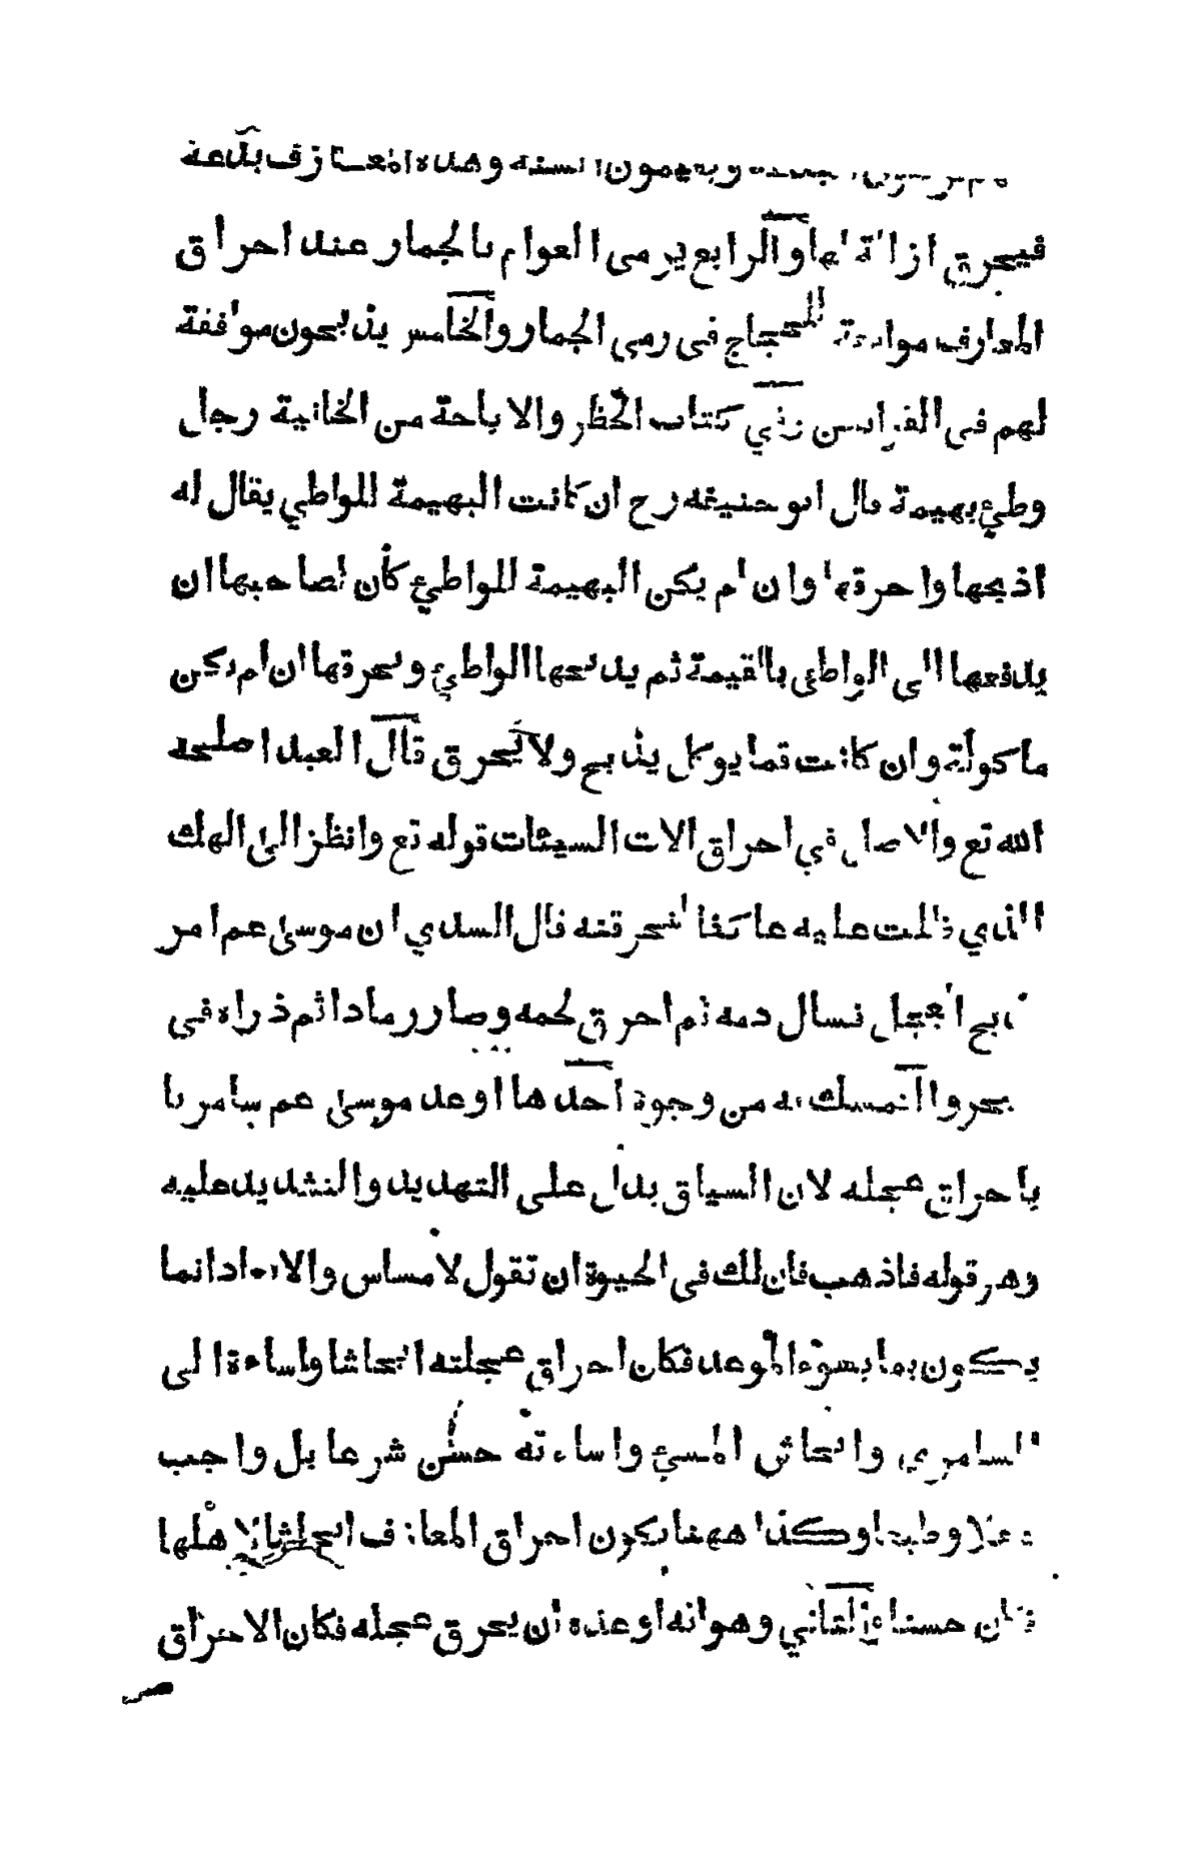 ويقيمون السنه وهذه المعازف بدعة
فيحرق ازالة لها والرابع يرمى العوام بالجمار عند احراق
المعازف موافقة للحجاج فى رمى الجمار والخامس يذبحون موافقة
لهم فى القرابين وفي كتاب الحظر والاباحة من الخانية رجل
وطئ بهيمة قال ابو حنيفه رح ان كانت البهيمة للواطي يقال له
اذبحها واحرقها وان لم يكن البهيمة للواطئ كان لصاحبها ان
يدفعها الى الواطئ بالقيمة ثم يذبحها الواطئ ويحرقها ان لم يكن
ماكولة وان كانت مما يوكل يذبح ولا يحرق قال العبد اصلحه
الله تع والاصل في احراق الات السيئات قوله تع وانظر الى الهك
الذي ظلت عليه عاكفا لنحرقنه قال السدي ان موسى عم امر
بذبح العجل فسال دمه ثم احرق لحمه وصار رمادا ثم ذراه فى
بحر والتمسك به من وجوه احدها اوعد موسى عم سامريا
باحراق عجله لان السياق يدل على التهديد والتشديد عليه
وهو قوله فاذهب فان لك فى الحيوة ان تقول لا مساس والايعاد انما
يكون بما يسوء الموعد فكان احراق عجلته ايحاشا واساءة الى
السامري وايحاش المسئ واساءته حسن شرعا بل واجب
عقلا وطبعا وكذا ههنا يكون احراق المعازف ايحاشا لاهلها
فكان حسنا والثاني وهو انه اوعده ان يحرق عجله فكان الاحراق